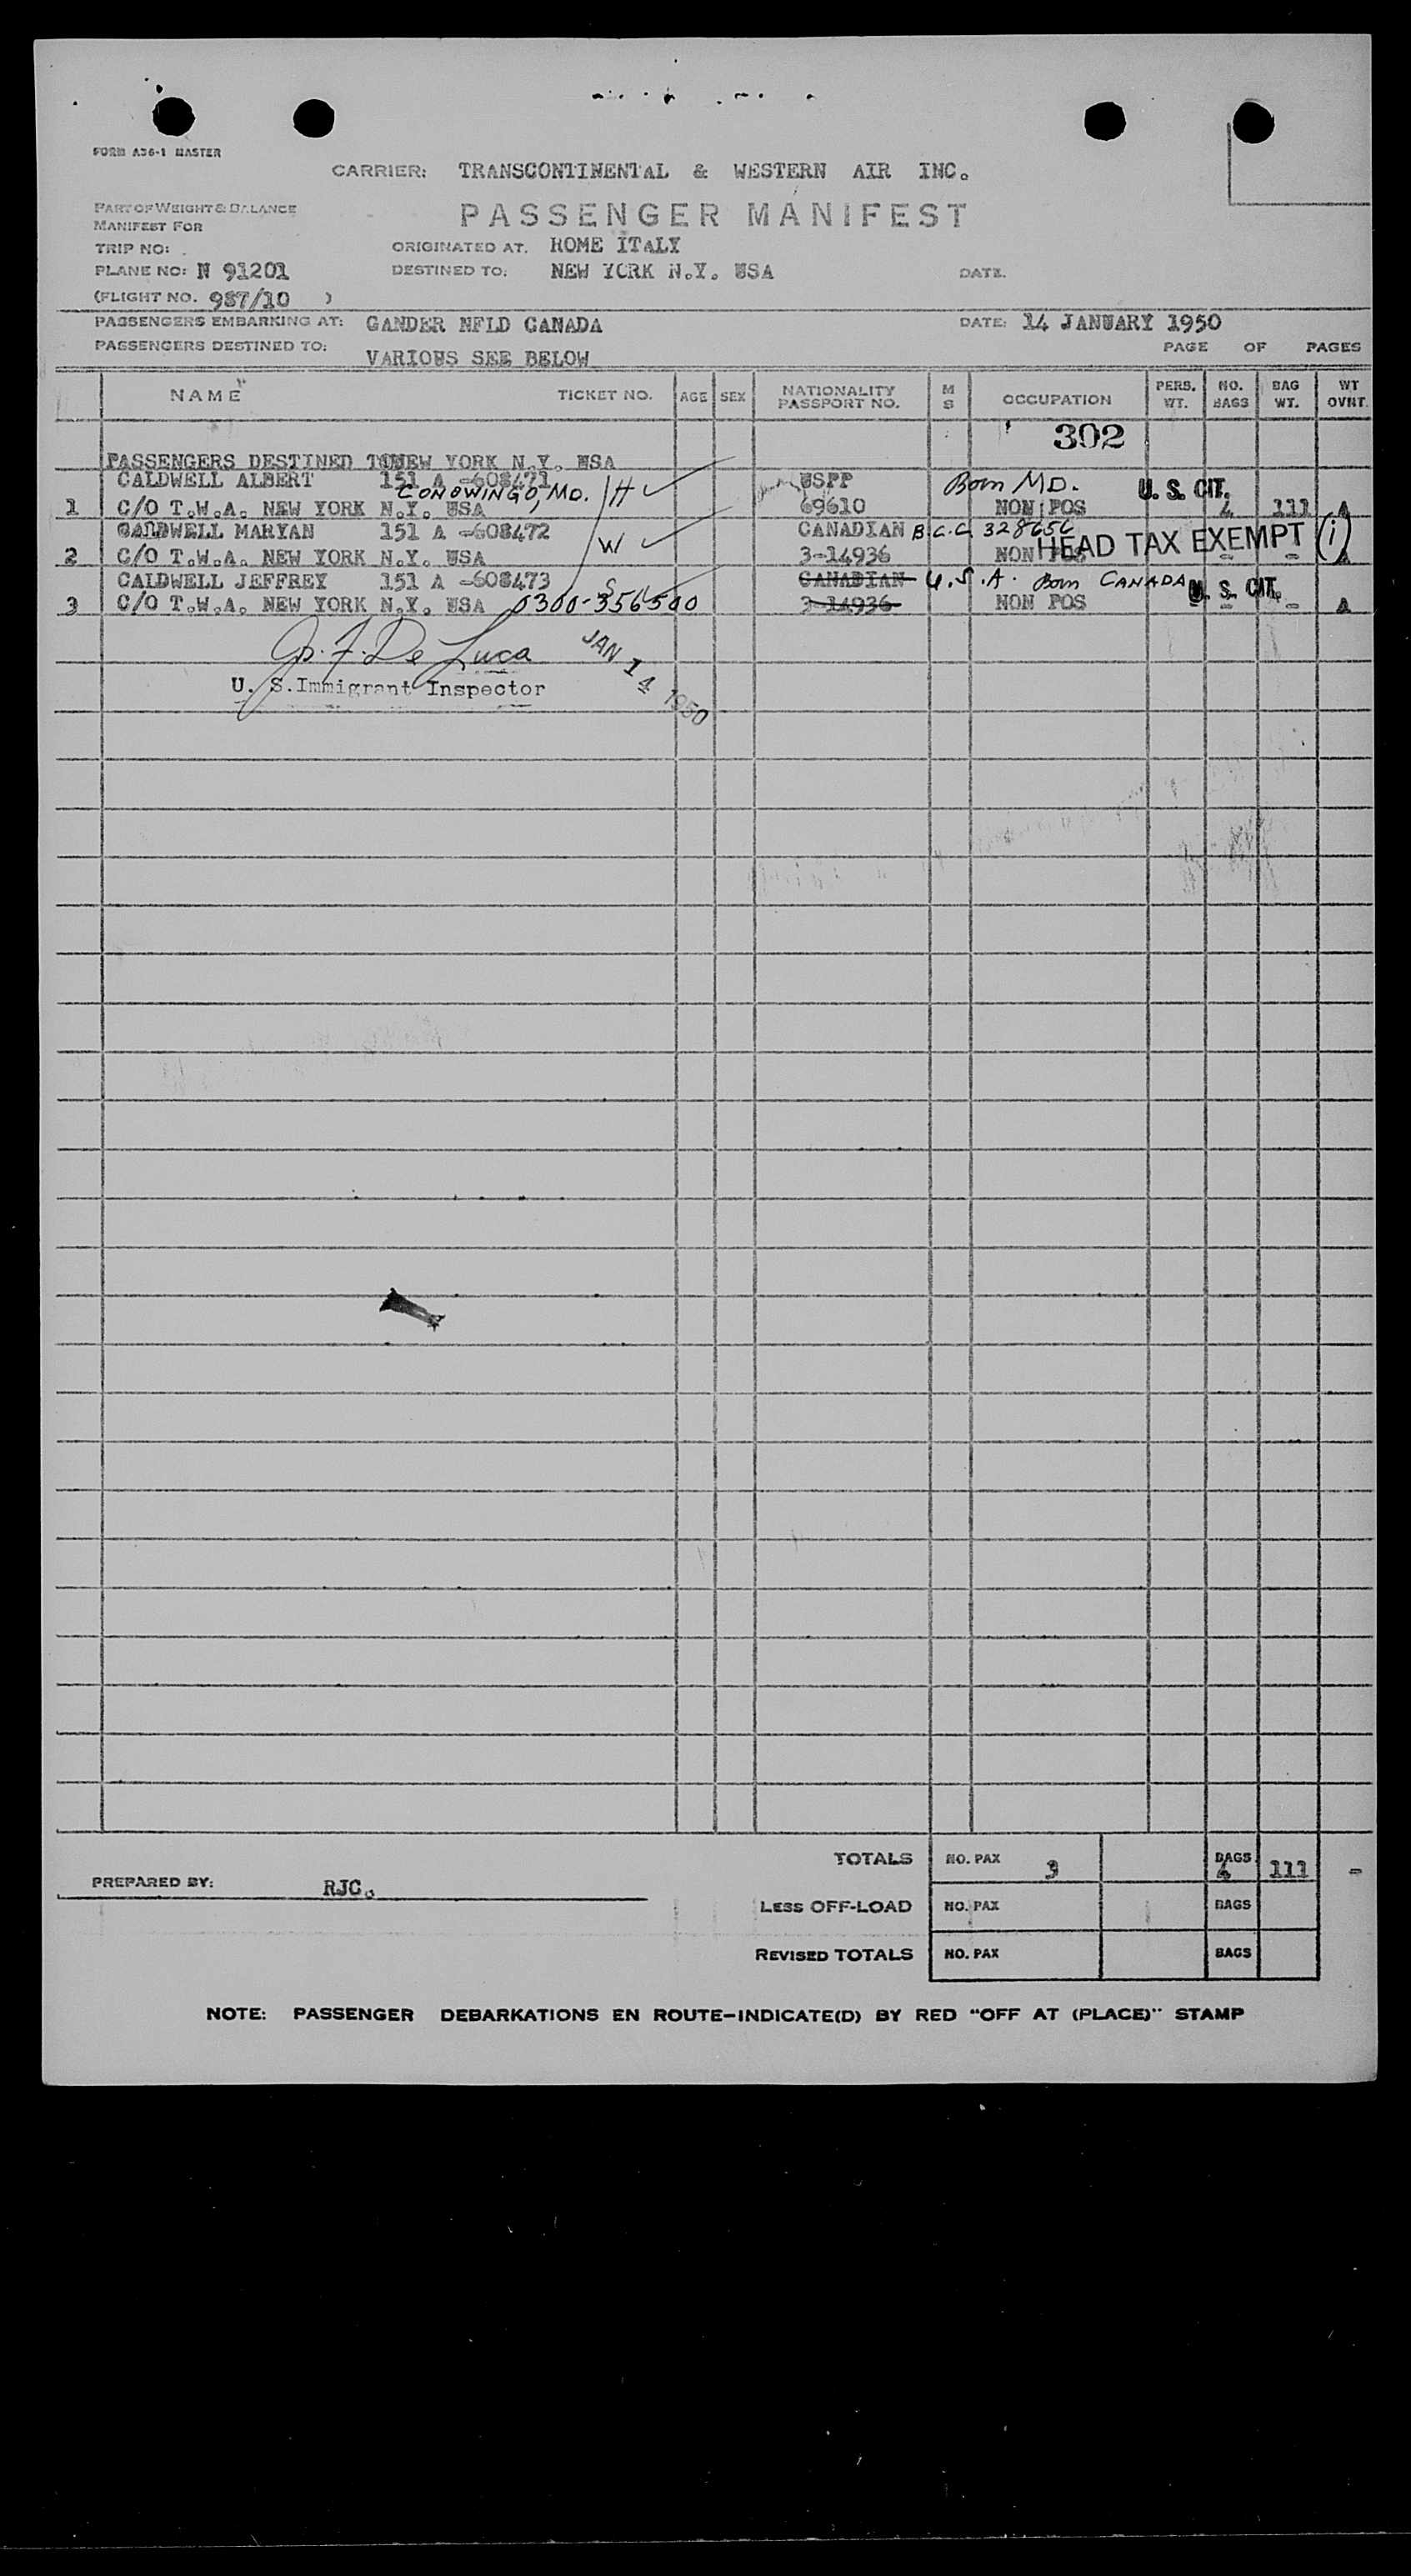 FORM A36-1 MASTER
CARRIER: TRANSCONTINENTAL & WESTERN AIR INC.
PART OF WEIGHT & BALANCE
MANIFEST FOR
PASSENGER MANIFEST
TRIP NO:
ORIGINATED AT. ROME ITALY
PLANE NO: N 91201
DESTINED TO: NEW YORK N.Y. USA
DATE.
(FLIGHT NO. 987/10 )
PASSENGERS EMBARKING AT: GANDER NFLD CANADA
DATE: 14 JANUARY 1950
PASSENGERS DESTINED TO: VARIOUS SEE BELOW
PAGE OF PAGES
NAME TICKET NO. AGE SEX NATIONALITY PASSPORT NO. M S OCCUPATION PERS. WT. NO. BAGS BAG WT. WT OVNT.
302
PASSENGERS DESTINED TO NEW YORK N.Y. USA
CALDWELL ALBERT 151 A -608471 USPP Born MD. U. S. CIT.
CONOWINGO, MD. H
1 C/O T.W.A. NEW YORK N.Y. USA 69610 NON POS 4 111 A
CALDWELL MARYAN 151 A -608472 CANADIAN B.C.C. 328656
W HEAD TAX EXEMPT (i)
2 C/O T.W.A. NEW YORK N.Y. USA 3-14936 NON POS - -
CALDWELL JEFFREY 151 A -608473 S CANADIAN U.S.A. Born CANADA U. S. CIT.
3 C/O T.W.A. NEW YORK N.Y. USA 0300-356500 3-14936 NON POS - - A
Jos. F. De Luca
JAN 14 1950
U. S. Immigrant Inspector
TOTALS NO. PAX 3 BAGS 4 111 -
PREPARED BY: RJC.
LESS OFF-LOAD NO. PAX BAGS
REVISED TOTALS NO. PAX BAGS
NOTE: PASSENGER DEBARKATIONS EN ROUTE-INDICATE(D) BY RED "OFF AT (PLACE)" STAMP